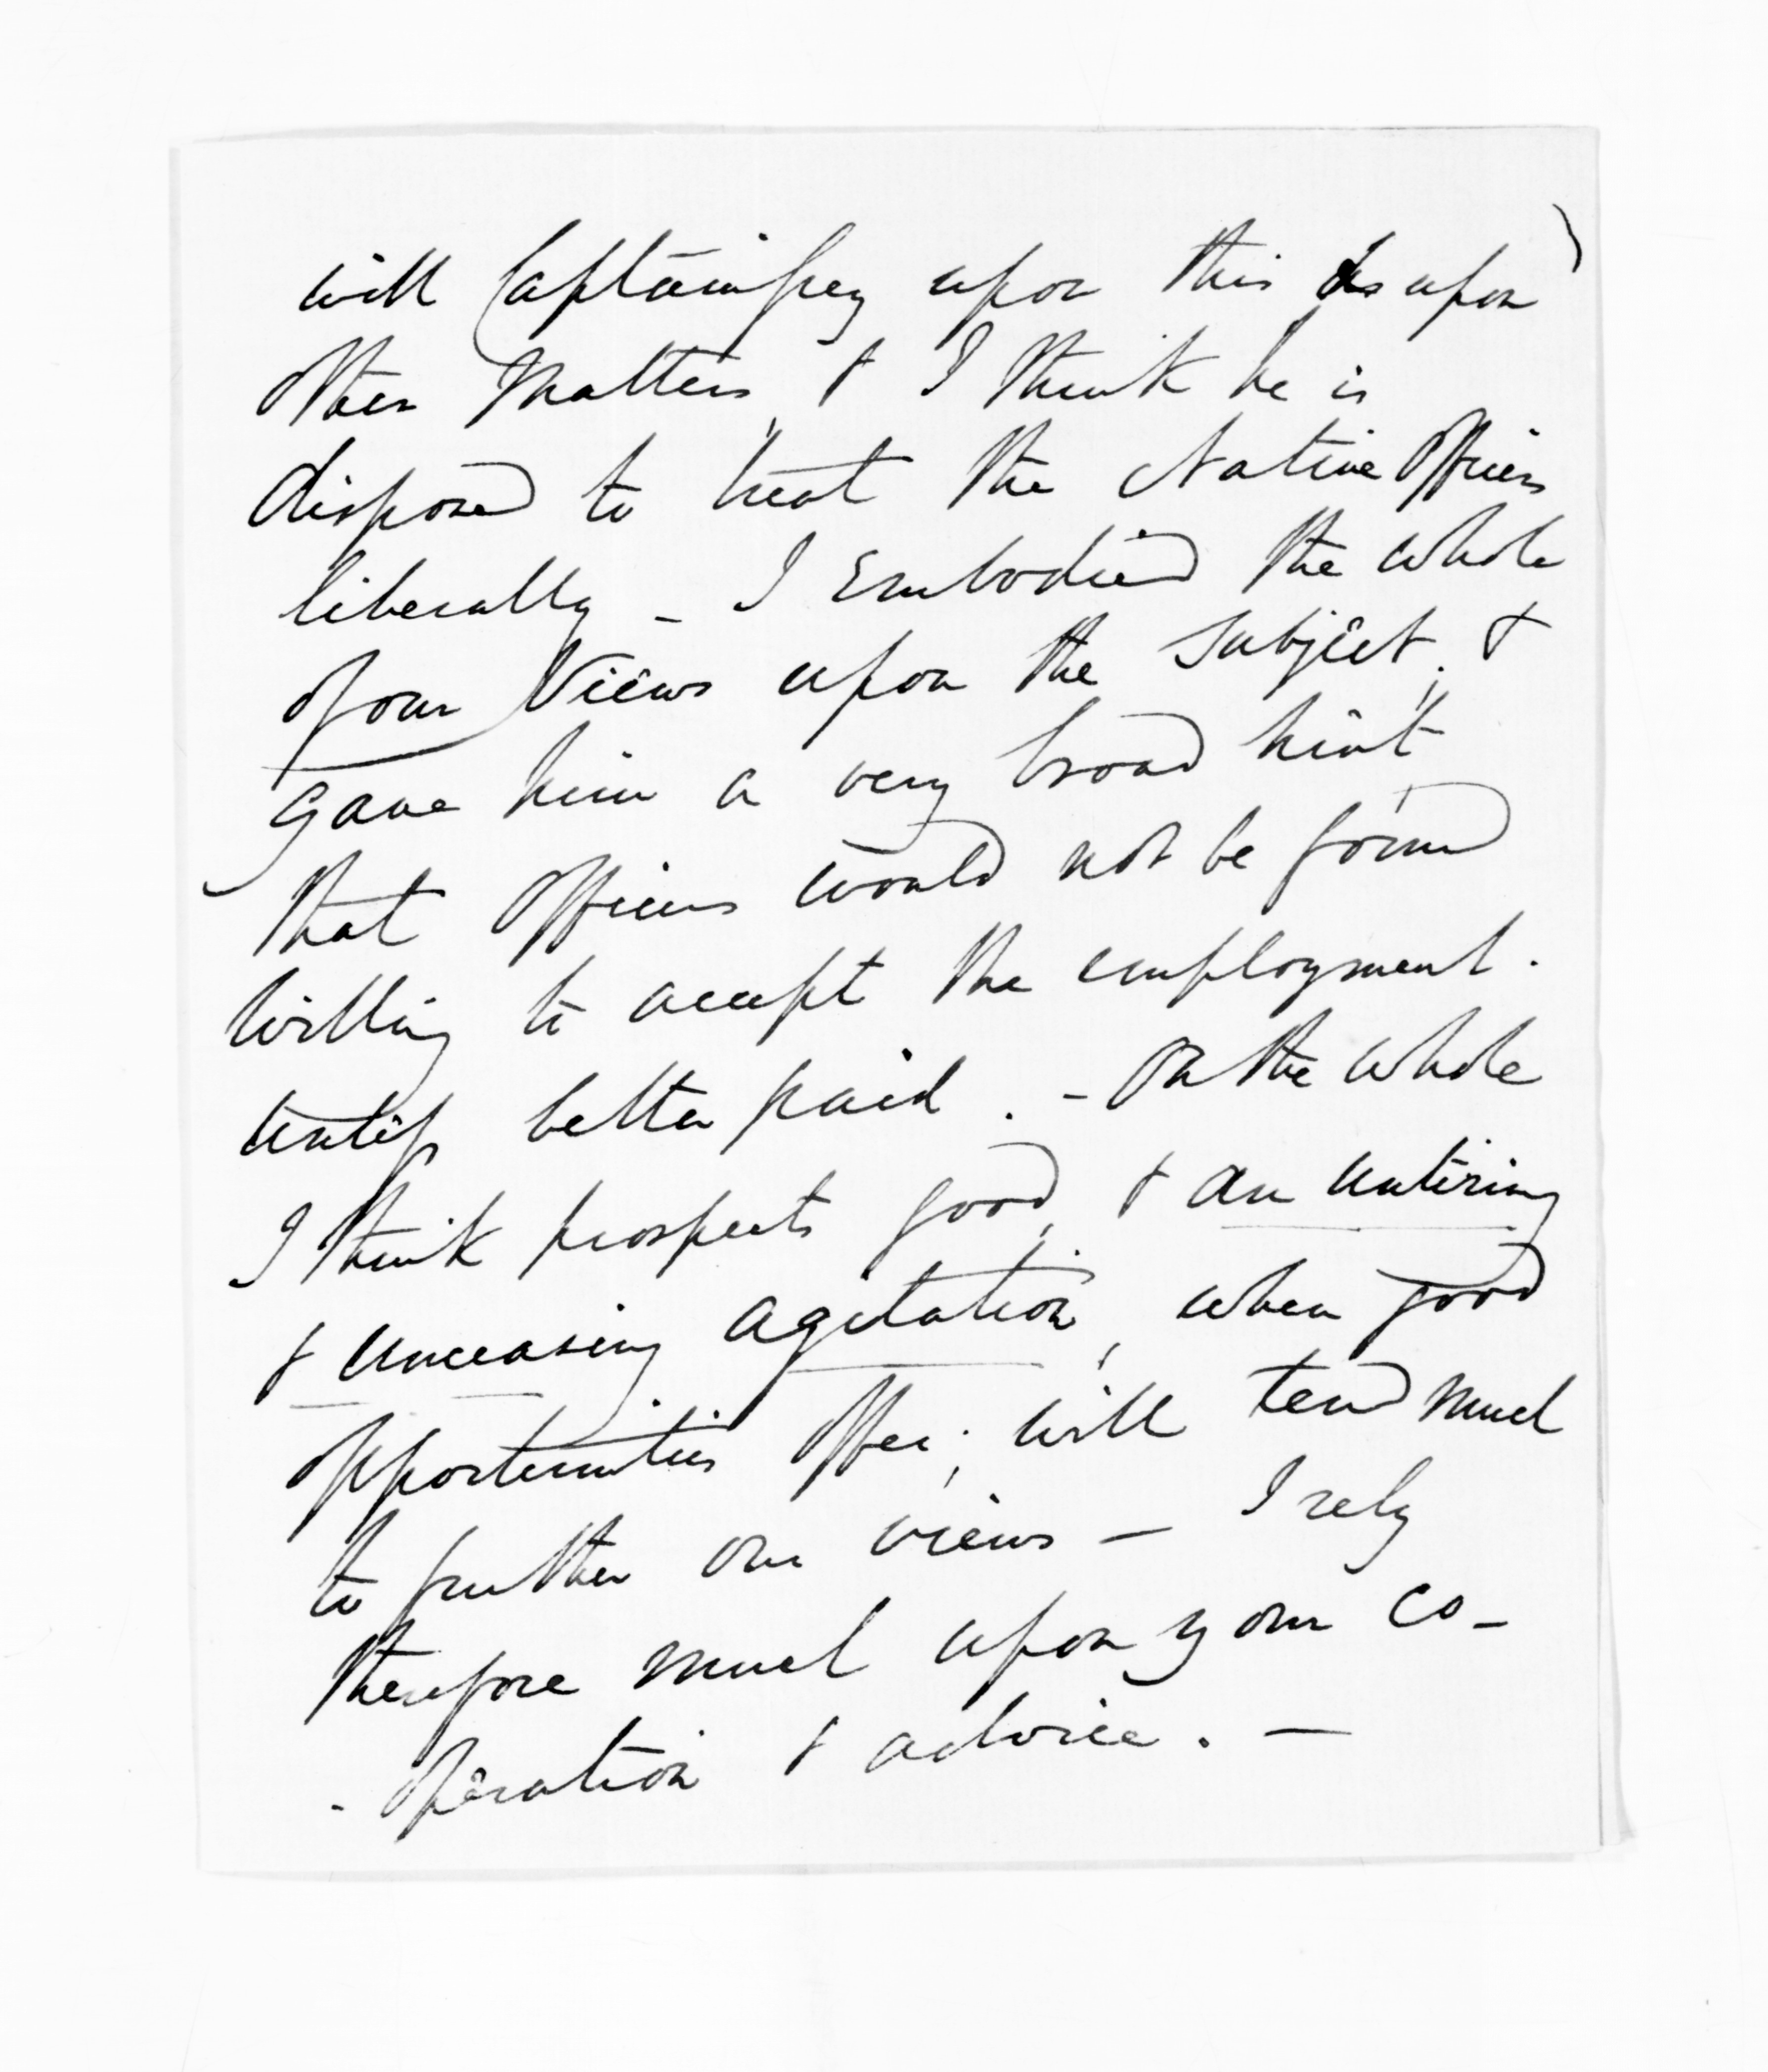 will captainfrey upon this as upon
other Matters, & I think he is
disposed to treat the Native Officers
liberally - I Embodied the whole
of our Views upon the subject, &
gave him a very broad hint,
that Officers would not be found
willing to accept the employment.
unless better paid. - On the whole
I think prospects good, & an untiring
& unceasing agitation, when good
opportunities offer, will tend much
to further our views - I rely
therefore much upon your co-
- operation & advice. -